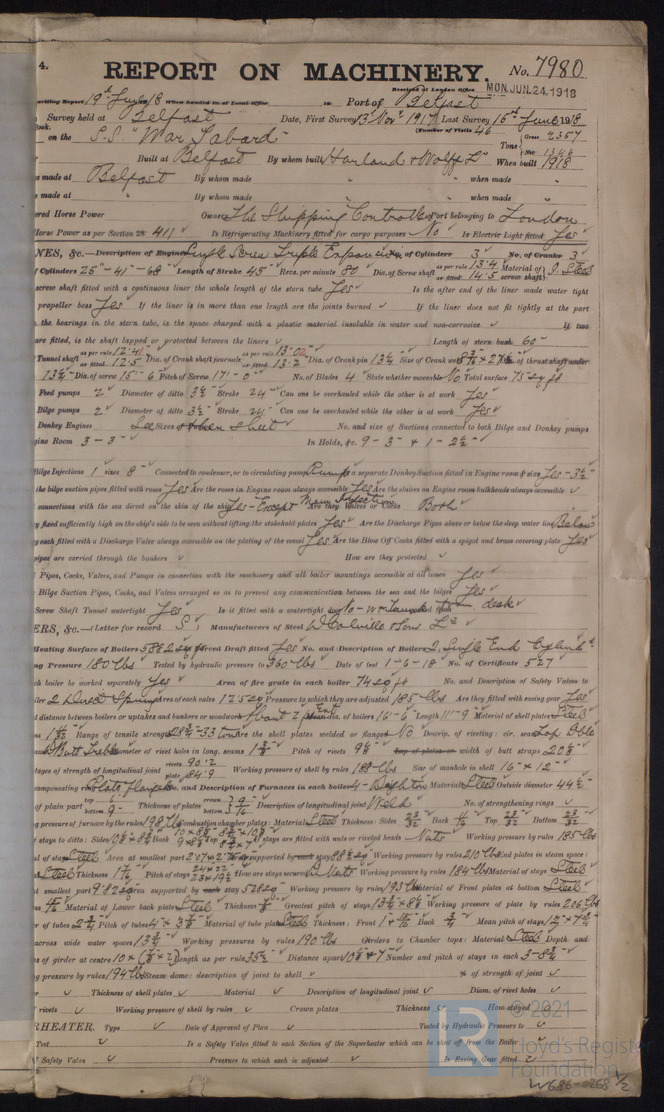 4.
REPORT ON MACHINERY. No. 7980
Received at London Office MON. JUN. 24. 1918
writing Report 19th June 1918 When handed in at Local Office 19 Port of Belfast
Survey held at Belfast Date, First Survey 13 Nov 1917 Last Survey 1918
(Number of Visits 46
on the S.S. "War Sabard" Tons Gross 2357 Net 1346
Built at Belfast By whom built Harland & Wolff Ld When built 1918
made at Belfast By whom made " when made "
made at By whom made when made
ered Horse Power Owners The Shipping Controller Port belonging to London
Horse Power as per Section 28 411 Is Refrigerating Machinery fitted for cargo purposes No Is Electric Light fitted Yes
NES, &c.—Description of Engines Single Screw Triple Expansion No. of Cylinders 3 No. of Cranks 3
f Cylinders 25"-41"-68" Length of Stroke 45" Revs. per minute 80 Dia. of Screw shaft as per rule 13.4 as fitted 14.5 Material of screw shaft I. Steel
screw shaft fitted with a continuous liner the whole length of the stern tube Yes Is the after end of the liner made water tight
propeller boss Yes If the liner is in more than one length are the joints burned If the liner does not fit tightly at the part
the bearings in the stern tube, is the space charged with a plastic material insoluble in water and non-corrosive If two
are fitted, is the shaft lapped or protected between the liners Length of stern bush 60"
Tunnel shaft as per rule 12.41 as fitted 12.5 Dia. of Crank shaft journals as per rule 13.02 as fitted 13.2 Dia. of Crank pin 13¼ Size of Crank webs of thrust shaft under
13¼ Dia. of screw 15'-6 Pitch of Screw 17'-0" No. of Blades 4 State whether moveable No Total surface 75 sq ft
Feed pumps 2 Diameter of ditto 3½ Stroke 24" Can one be overhauled while the other is at work Yes
Bilge pumps 2 Diameter of ditto 3½ Stroke 24" Can one be overhauled while the other is at work Yes
Donkey Engines See Sizes other sheet No. and size of Suctions connected to both Bilge and Donkey pumps
gine Room 3-3" In Holds, &c. 9-3" & 1-2½"
Bilge Injections 1 sizes 8" Connected to condenser, or to circulating pump Pump Is a separate Donkey Suction fitted in Engine room & size Yes-3½"
the bilge suction pipes fitted with roses Yes Are the roses in Engine room always accessible Yes Are the sluices on Engine room bulkheads always accessible
connections with the sea direct on the skin of the ship Yes - Except Main Injection Are they Valves or Cocks Both
y fixed sufficiently high on the ship's side to be seen without lifting the stokehold plates Yes Are the Discharge Pipes above or below the deep water line Below
y each fitted with a Discharge Valve always accessible on the plating of the vessel Yes Are the Blow Off Cocks fitted with a spigot and brass covering plate Yes
pipes are carried through the bunkers How are they protected
l Pipes, Cocks, Valves, and Pumps in connection with the machinery and all boiler mountings accessible at all times Yes
Bilge Suction Pipes, Cocks, and Valves arranged so as to prevent any communication between the sea and the bilges Yes
Screw Shaft Tunnel watertight Yes Is it fitted with a watertight door No
ERS, &c.—(Letter for record S) Manufacturers of Steel D Colville & Sons Ld
Heating Surface of Boilers Forced Draft fitted Yes No. and Description of Boilers 2 Single End Cylind
ng Pressure 180 lbs Tested by hydraulic pressure to 360 lbs Date of test 1-6-18 No. of Certificate 527
ch boiler be worked separately Yes Area of fire grate in each boiler 74 sq ft No. and Description of Safety Valves to
iler 2 Direct Spring Area of each valve Pressure to which they are adjusted 185 lbs Are they fitted with easing gear Yes
t distance between boilers or uptakes and bunkers or woodwork About 2 feet Dia. of boilers 16'-6" Length 11'-9" Material of shell plates Steel
Range of tensile strength 28¾-33 tons Are the shell plates welded or flanged No Descrip. of riveting: cir. seams Lap Dble
D Butt Treble Diameter of rivet holes in long. seams 1⅜ Pitch of rivets 9⅝ Lap of plates or width of butt straps 20⅝
tages of strength of longitudinal joint rivets 90.2 plate 84.9 Working pressure of shell by rules 188 lbs Size of manhole in shell 16" x 12"
compensating Plate Flanged No. and Description of Furnaces in each boiler 4-Deighton Material Steel Outside diameter 44½
of plain part top bottom 9- Thickness of plates crown bottom 9/16 Description of longitudinal joint Weld No. of strengthening rings
g pressure of furnace by the rules 198 lbs Combustion chamber plates: Material Steel Thickness: Sides 23/32 Back 11/16 Top 23/32 Bottom 23/32
f stays to ditto: Sides Back Top If stays are fitted with nuts or riveted heads Nuts Working pressure by rules 185 lbs
l of stays Steel Area at smallest part Area supported by each stay Working pressure by rules 210 lbs End plates in steam space:
Steel Thickness Pitch of stays How are stays secured D Nuts Working pressure by rules 184 lbs Material of stays Steel
t smallest part Area supported by each stay Working pressure by rules 193 lbs Material of Front plates at bottom Steel
Material of Lower back plate Steel Thickness Greatest pitch of stays Working pressure of plate by rules 206 lbs
r of tubes 2¾ Pitch of tubes Material of tube plates Steel Thickness: Front Back ¾ Mean pitch of stays
across wide water spaces 13¾ Working pressures by rules 190 lbs Girders to Chamber tops: Material Steel Depth and
s of girder at centre Length as per rule 35½ Distance apart Number and pitch of stays in each 3-8¾
g pressure by rules 194 lbs Steam dome: description of joint to shell % of strength of joint
r Thickness of shell plates Material Description of longitudinal joint Diam. of rivet holes
rivets Working pressure of shell by rules Crown plates Thickness How stayed
RHEATER. Type Date of Approval of Plan Tested by Hydraulic Pressure to
Test Is a Safety Valve fitted to each Section of the Superheater which can be shut off from the Boiler
f Safety Valve Pressure to which each is adjusted Is Easing Gear fitted
© 2021
Lloyd's Register
Foundation
W686-0268 1/2